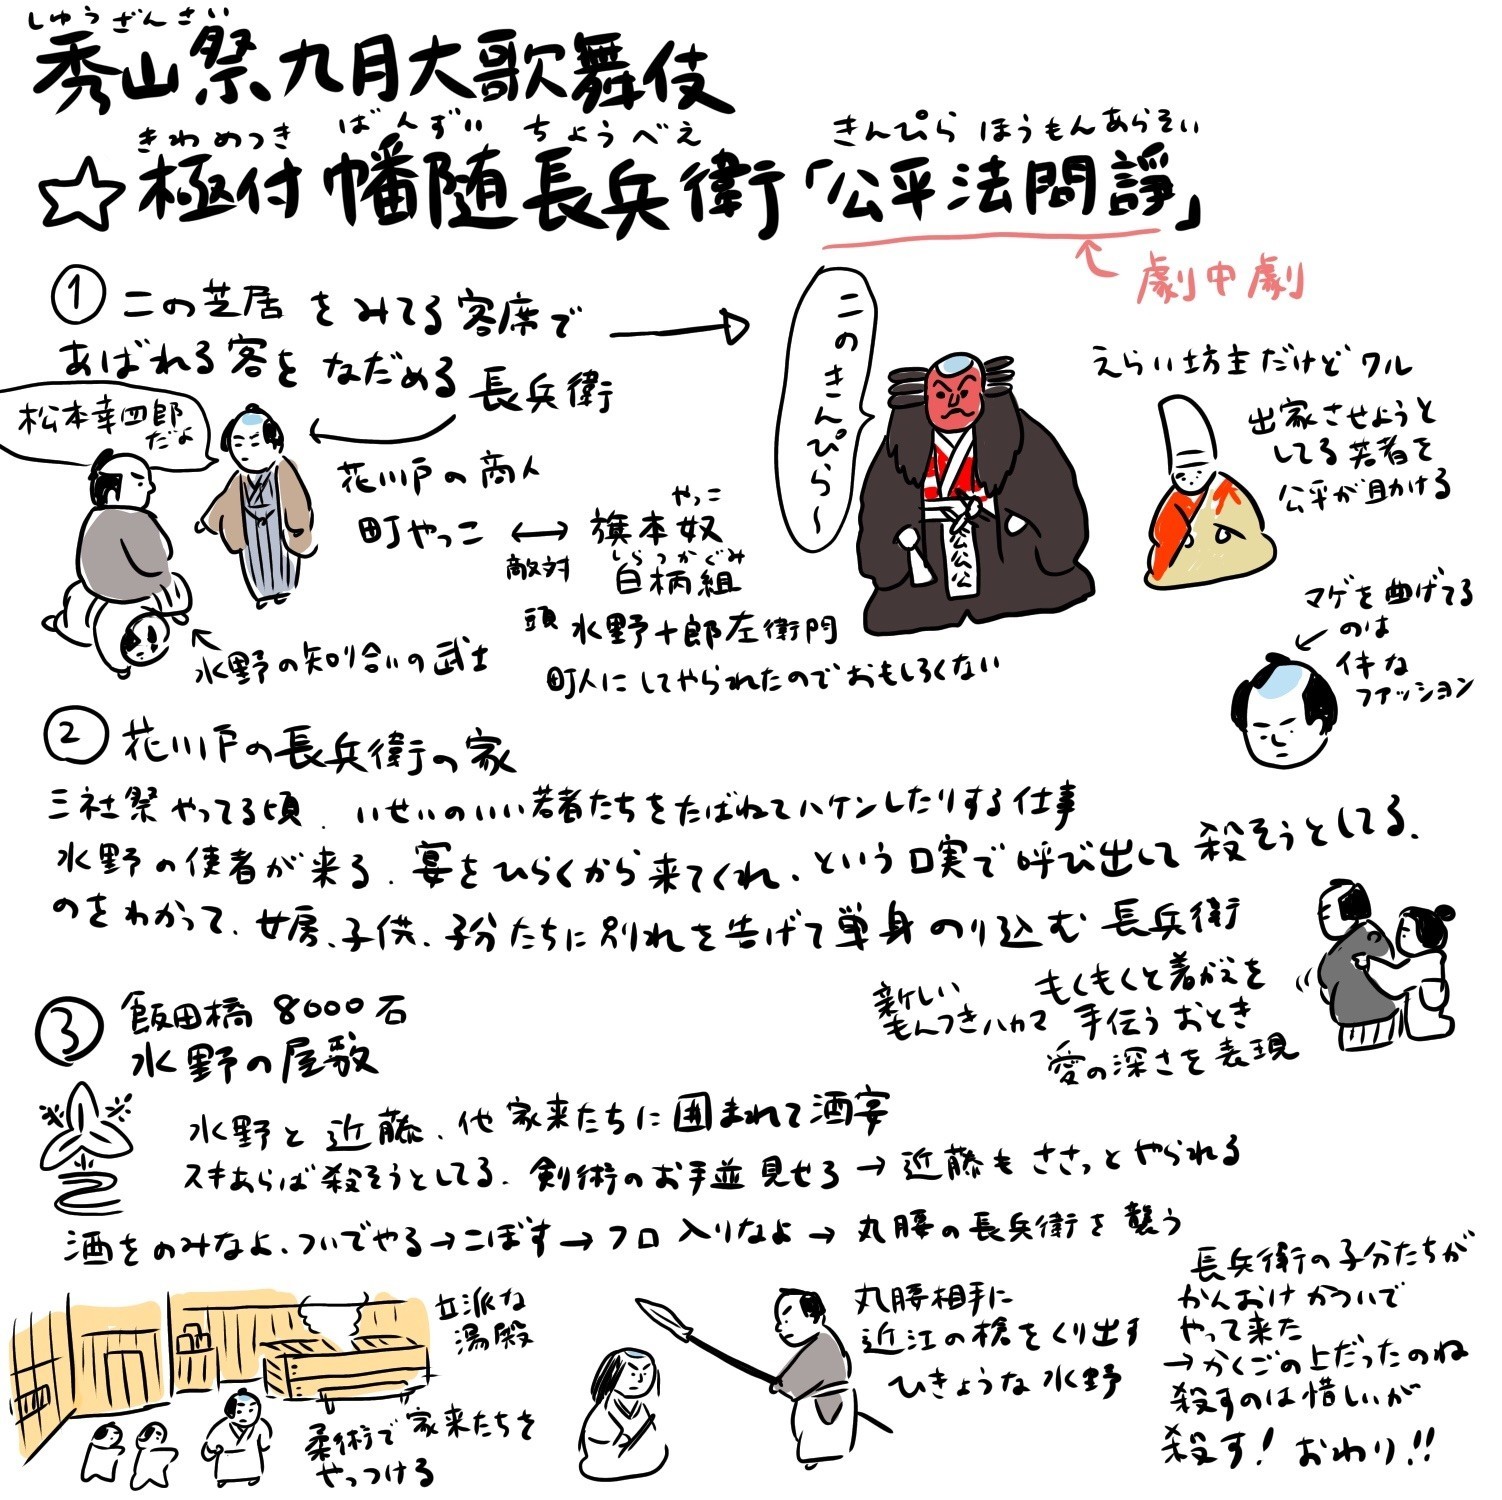 しゅうざんさい
秀山祭九月大歌舞伎
きわめつき ばんずい ちょうべえ きんぴら ほうもんあらそい
☆極付 幡随長兵衛「公平法問諍」
劇中劇
① この芝居をみてる客席で
あばれる客をなだめる長兵衛
松本幸四郎
だよ
花川戸の商人
町やっこ ↔ 旗本奴
やっこ
敵対
しらつかぐみ
白柄組
頭 水野十郎左衛門
町人にしてやられたのでおもしろくない
水野の知り合いの武士
このきんぴら〜
公公公
えらい坊主だけどワル
出家させようと
してる若者を
公平が助ける
マゲを曲げてる
のは
イキな
ファッション
② 花川戸の長兵衛の家
三社祭やってる頃、いせいのいい若者たちをたばねてハケンしたりする仕事
水野の使者が来る、宴をひらくから来てくれ、という口実で呼び出して殺そうとしてる、
のをわかって、女房、子供、子分たちに別れを告げて単身のり込む長兵衛
新しい
もんつきハカマ
もくもくと着がえを
手伝うおとき
愛の深さを表現
③ 飯田橋 8000石
水野の屋敷
水野と近藤、他家来たちに囲まれて酒宴
スキあらば殺そうとしてる、剣術のお手並見せろ→近藤もささっとやられる
酒をのみなよ、ついでやる→こぼす→フロ入りなよ→丸腰の長兵衛を襲う
立派な
湯殿
柔術で家来たちを
やっつける
丸腰相手に
近江の槍をくり出す
ひきょうな水野
長兵衛の子分たちが
かんおけかついで
やって来た
→かくごの上だったのね
殺すのは惜しいが
殺す! おわり!!